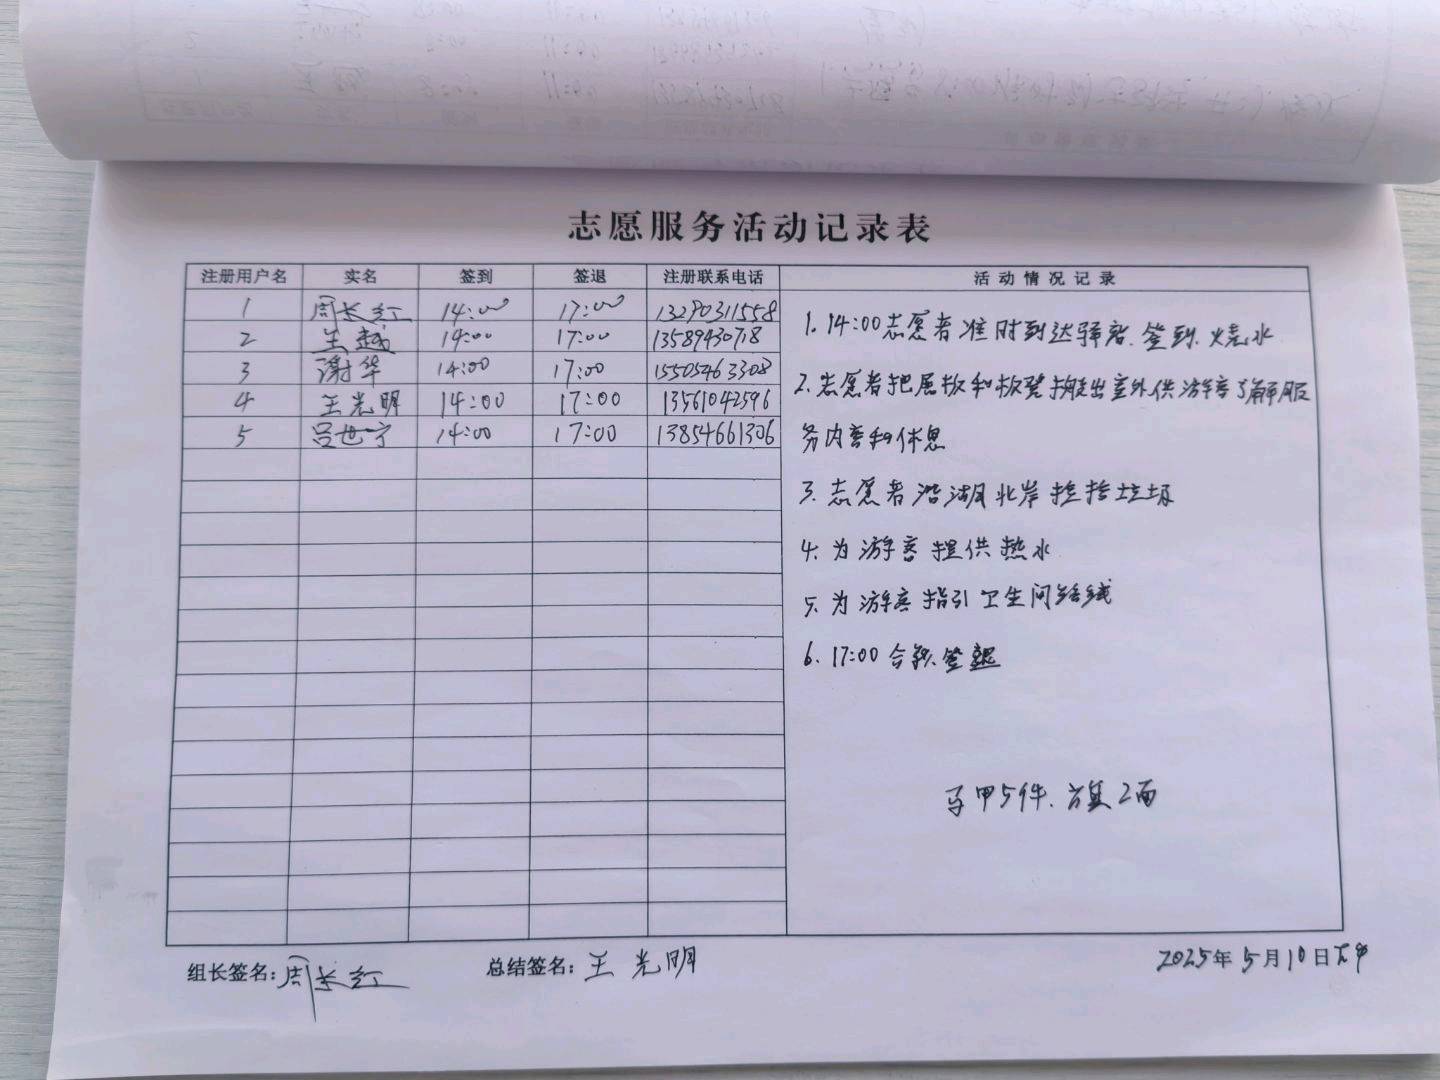 志愿服务活动记录表
注册用户名 实名 签到 签退 注册联系电话 活动情况记录
1 周长红 14:00 17:00 13290311558
2 生越 14:00 17:00 13589430718
3 谢华 14:00 17:00 15505463308
4 王光明 14:00 17:00 13561042596
5 吕世宁 14:00 17:00 13854661306
1. 14:00志愿者准时到达驿站.签到.烧水
2.志愿者把展板和板凳搬出室外供游客了解服
务内容和休息
3.志愿者沿湖北岸捡拾垃圾
4.为游客提供热水
5.为游客指引卫生间路线
6.17:00合影.签退
马甲5件.旗2面
组长签名:周长红 总结签名:王光明 2025年5月10日下午